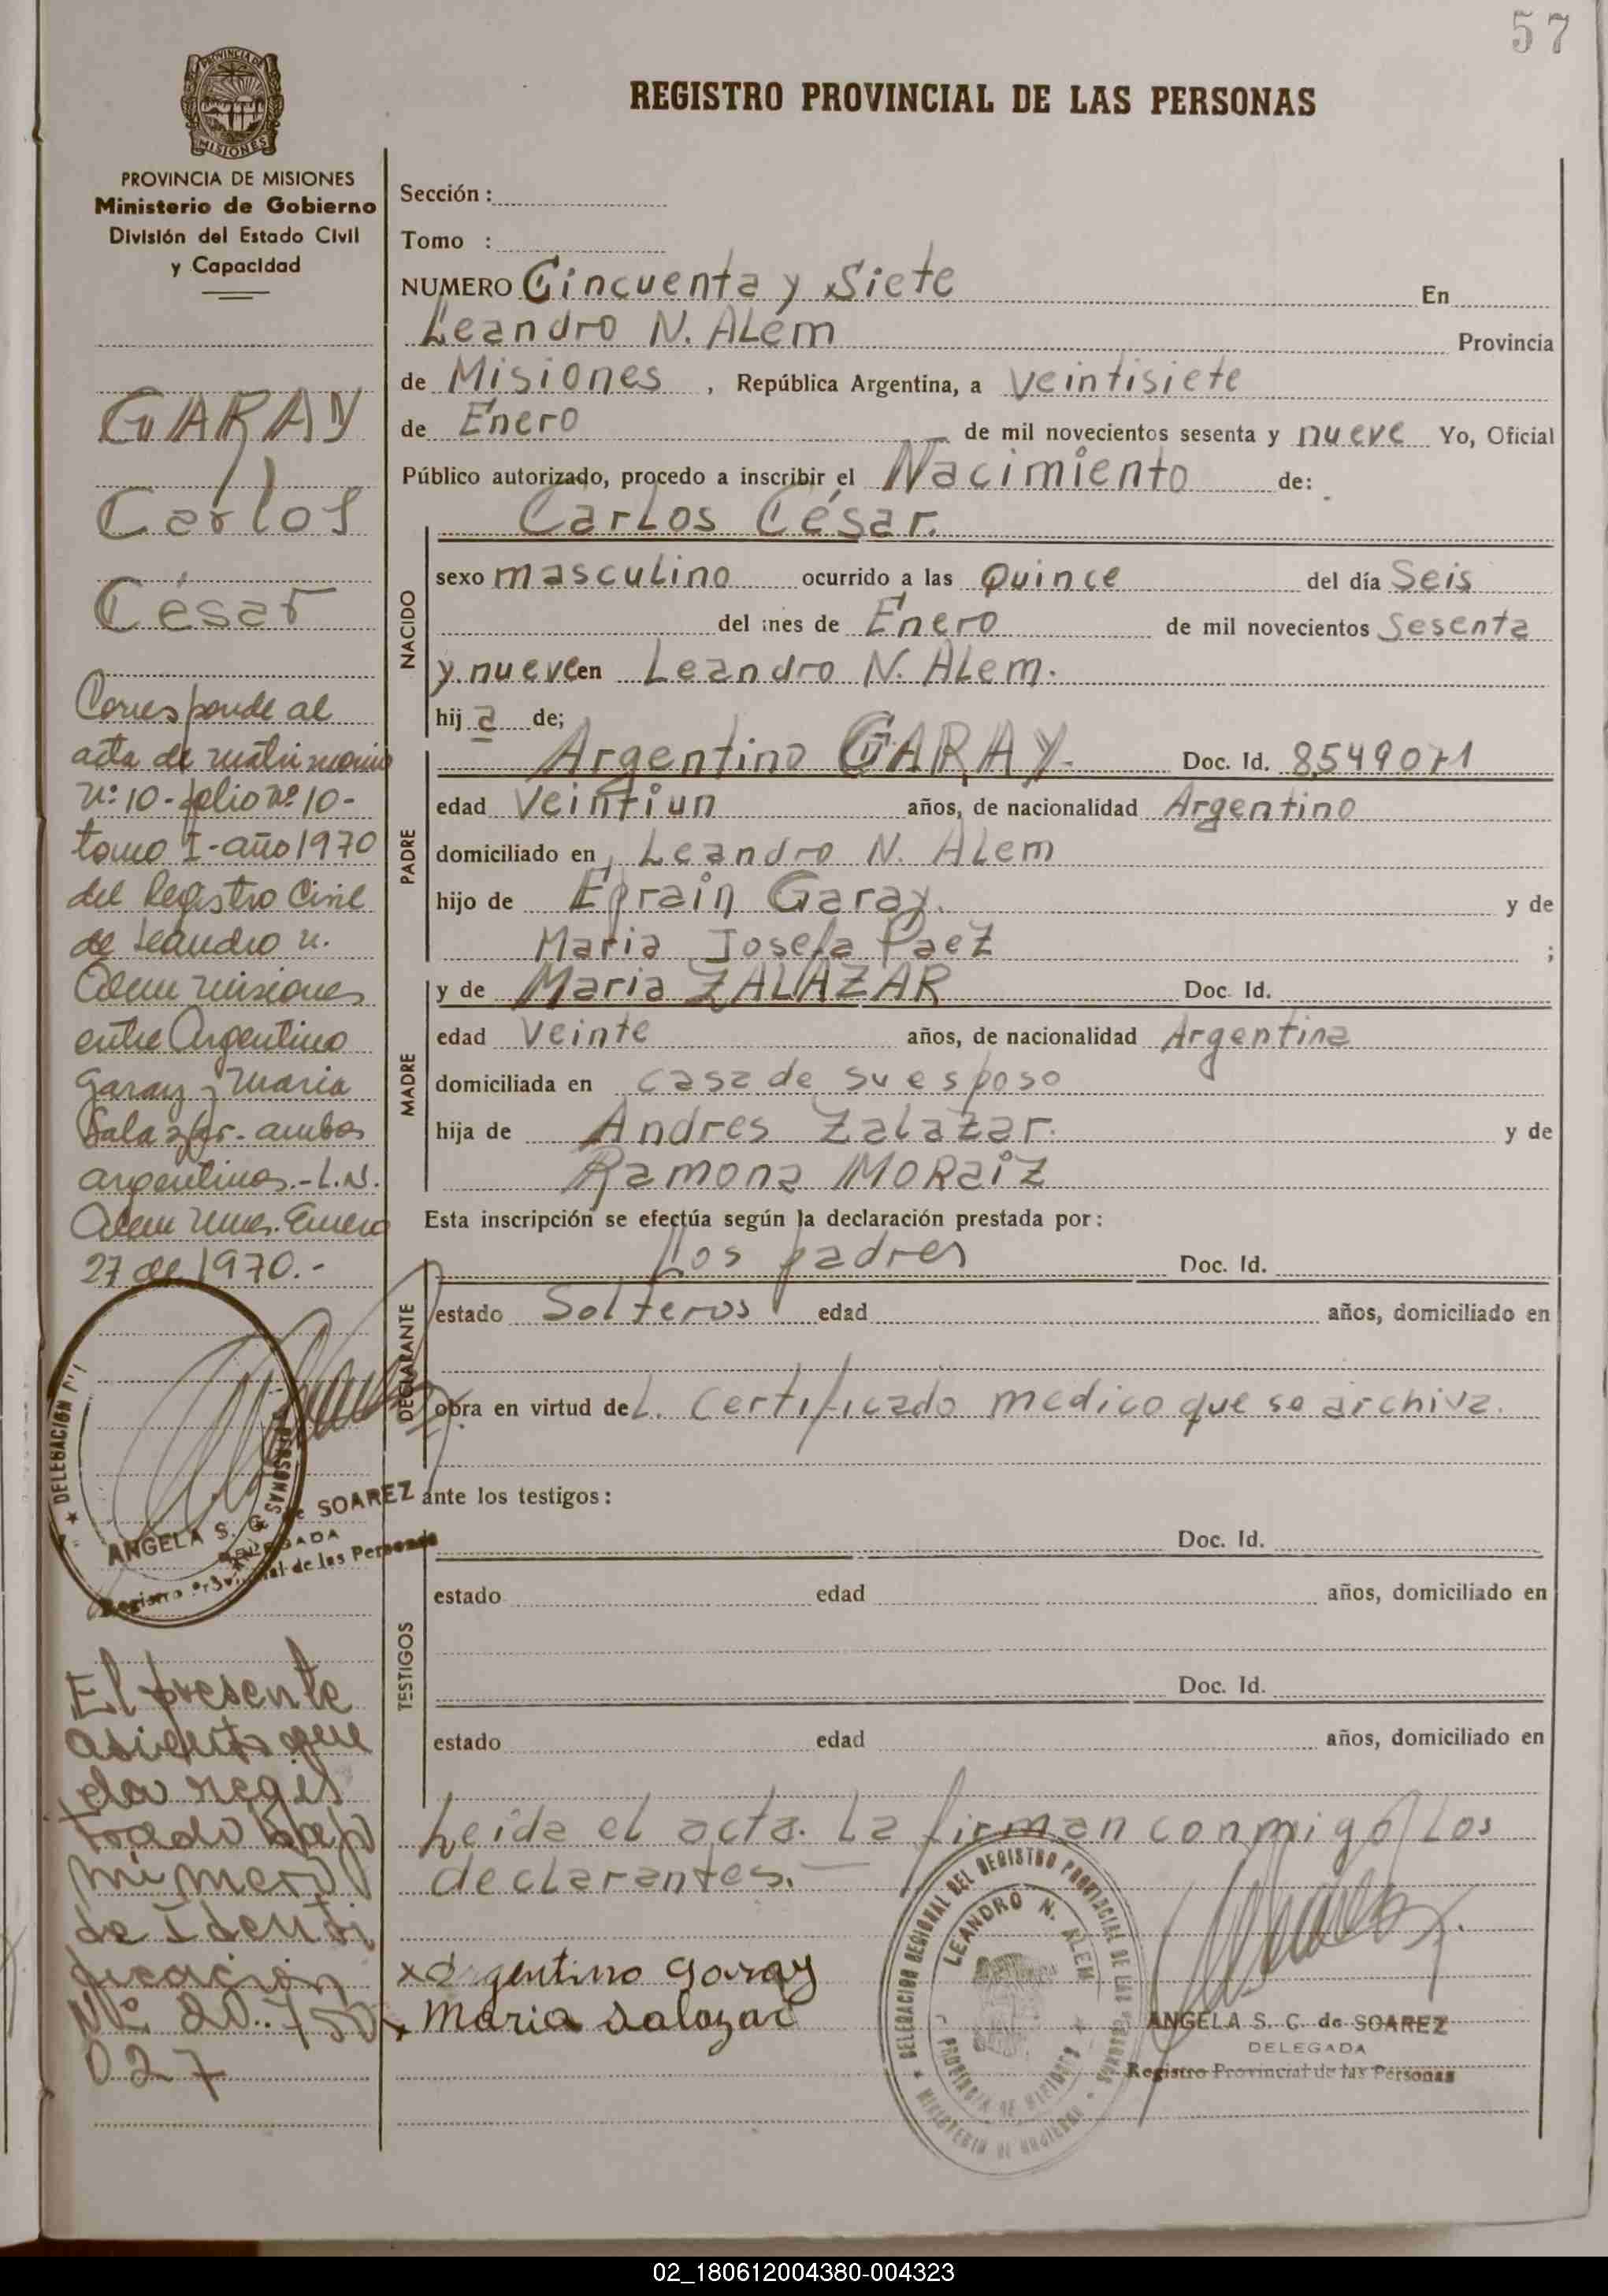 57
REGISTRO PROVINCIAL DE LAS PERSONAS
PROVINCIA DE MISIONES
PROVINCIA DE MISIONES
Ministerio de Gobierno
División del Estado Civil
y Capacidad
GARAY
Carlos
César
Corresponde al
acta de matrimonio
nº 10-folio nº 10-
tomo I-año 1970
del Registro Civil
de Leandro N.
Alem misiones
entre Argentino
Garay y Maria
Salazar-ambos
argentinos.-L.N.
Alem Mnes. Enero
27 de 1970.-
ANGELA S. C. de SOAREZ
DELEGADA
Registro Provincial de las Personas
El presente
asiento que
da regis
trado bajo
número
de Identi
ficación
Nº 20.750
027
Sección :
Tomo :
NUMERO Cincuenta y Siete En
Leandro N. ALem Provincia
de Misiones , República Argentina, a veintisiete
de Enero de mil novecientos sesenta y nueve Yo, Oficial
Público autorizado, procedo a inscribir el Nacimiento de:
NACIDO
CarLos César.
sexo mascuLino ocurrido a las Quince del día Seis
del mes de Enero de mil novecientos Sesenta
y nueve en Leandro N. ALem.
hij a de;
PADRE
Argentino GARAY- Doc. Id. 8549071
edad Veintiun años, de nacionalidad Argentino
domiciliado en, Leandro N. ALem
hijo de Efrain Garay. y de
Maria Josefa Paez ;
MADRE
y de Maria ZALAZAR Doc. Id.
edad Veinte años, de nacionalidad Argentina
domiciliada en casa de su esposo
hija de Andres Zalazar. y de
Ramona MORaiZ
Esta inscripción se efectúa según la declaración prestada por:
DECLARANTE
Los padres Doc. Id.
estado Solteros edad años, domiciliado en
obra en virtud deL. Certificado medico que se archiva.
ante los testigos:
TESTIGOS
Doc. Id.
estado edad años, domiciliado en
Doc. Id.
estado edad años, domiciliado en
Leida el acta. La firman conmigo Los
declarantes.—
x Argentino Garay
x Maria Salazar
DELEGACION REGIONAL DEL REGISTRO PROVINCIAL DE LAS PERSONAS
LEANDRO N. ALEM
PROVINCIA DE MISIONES
MINISTERIO DE GOBIERNO
ANGELA S. C. de SOAREZ
DELEGADA
Registro Provincial de las Personas
02_180612004380-004323